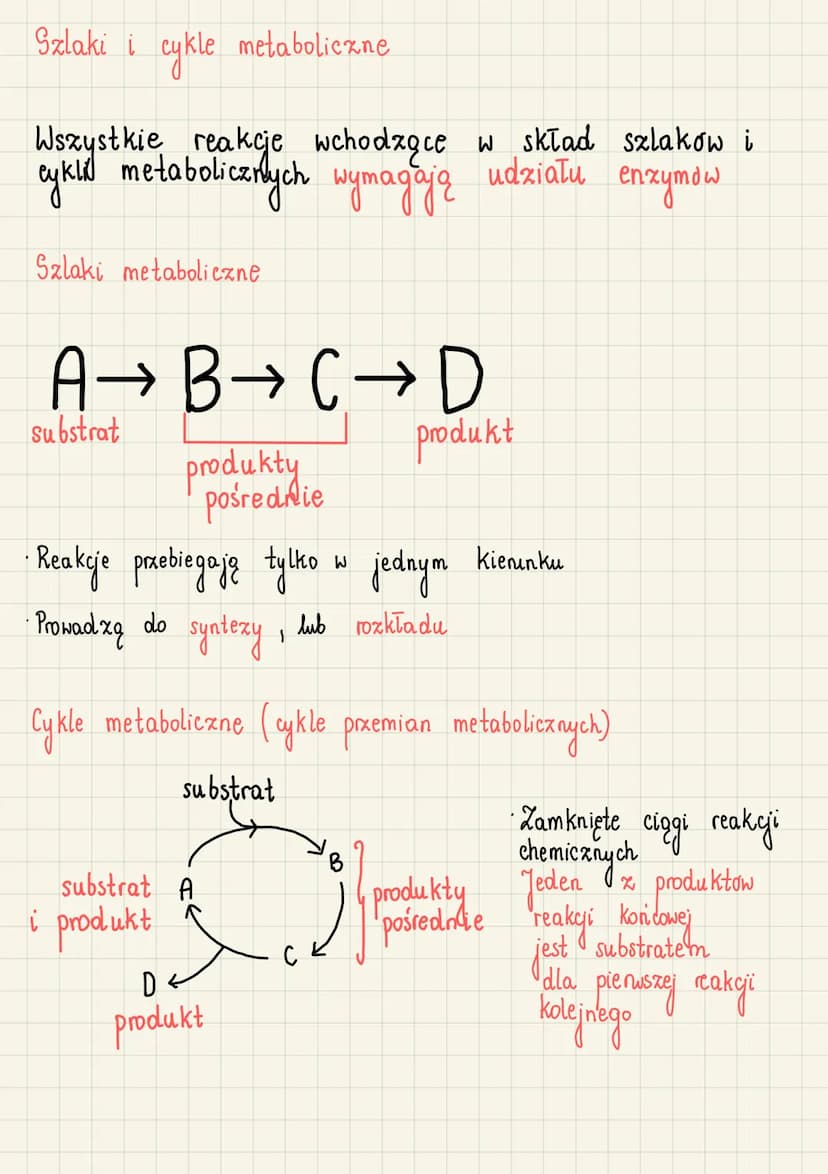 Szlaki i cykle metaboliczne
Wszystkie reakcje wchodzące w skład szlaków i
cykli metabolicznych wymagają udziału enzymów
Szlaki metaboliczne
A → B → C → D
substrat
produkt
produkty
pośrednie
· Reakcje przebiegają tylko w jednym kierunku
· Prowadzą do syntezy, lub rozkładu
Cykle metaboliczne (cykle przemian metabolicznych)
substrat
B
substrat A
i produkt
produkty
pośrednie
C
D
produkt
· Zamknięte ciągi reakcji
chemicznych
Jeden z produktów
reakcji końcowej
jest substratem
dla pierwszej reakcji
kolejnego